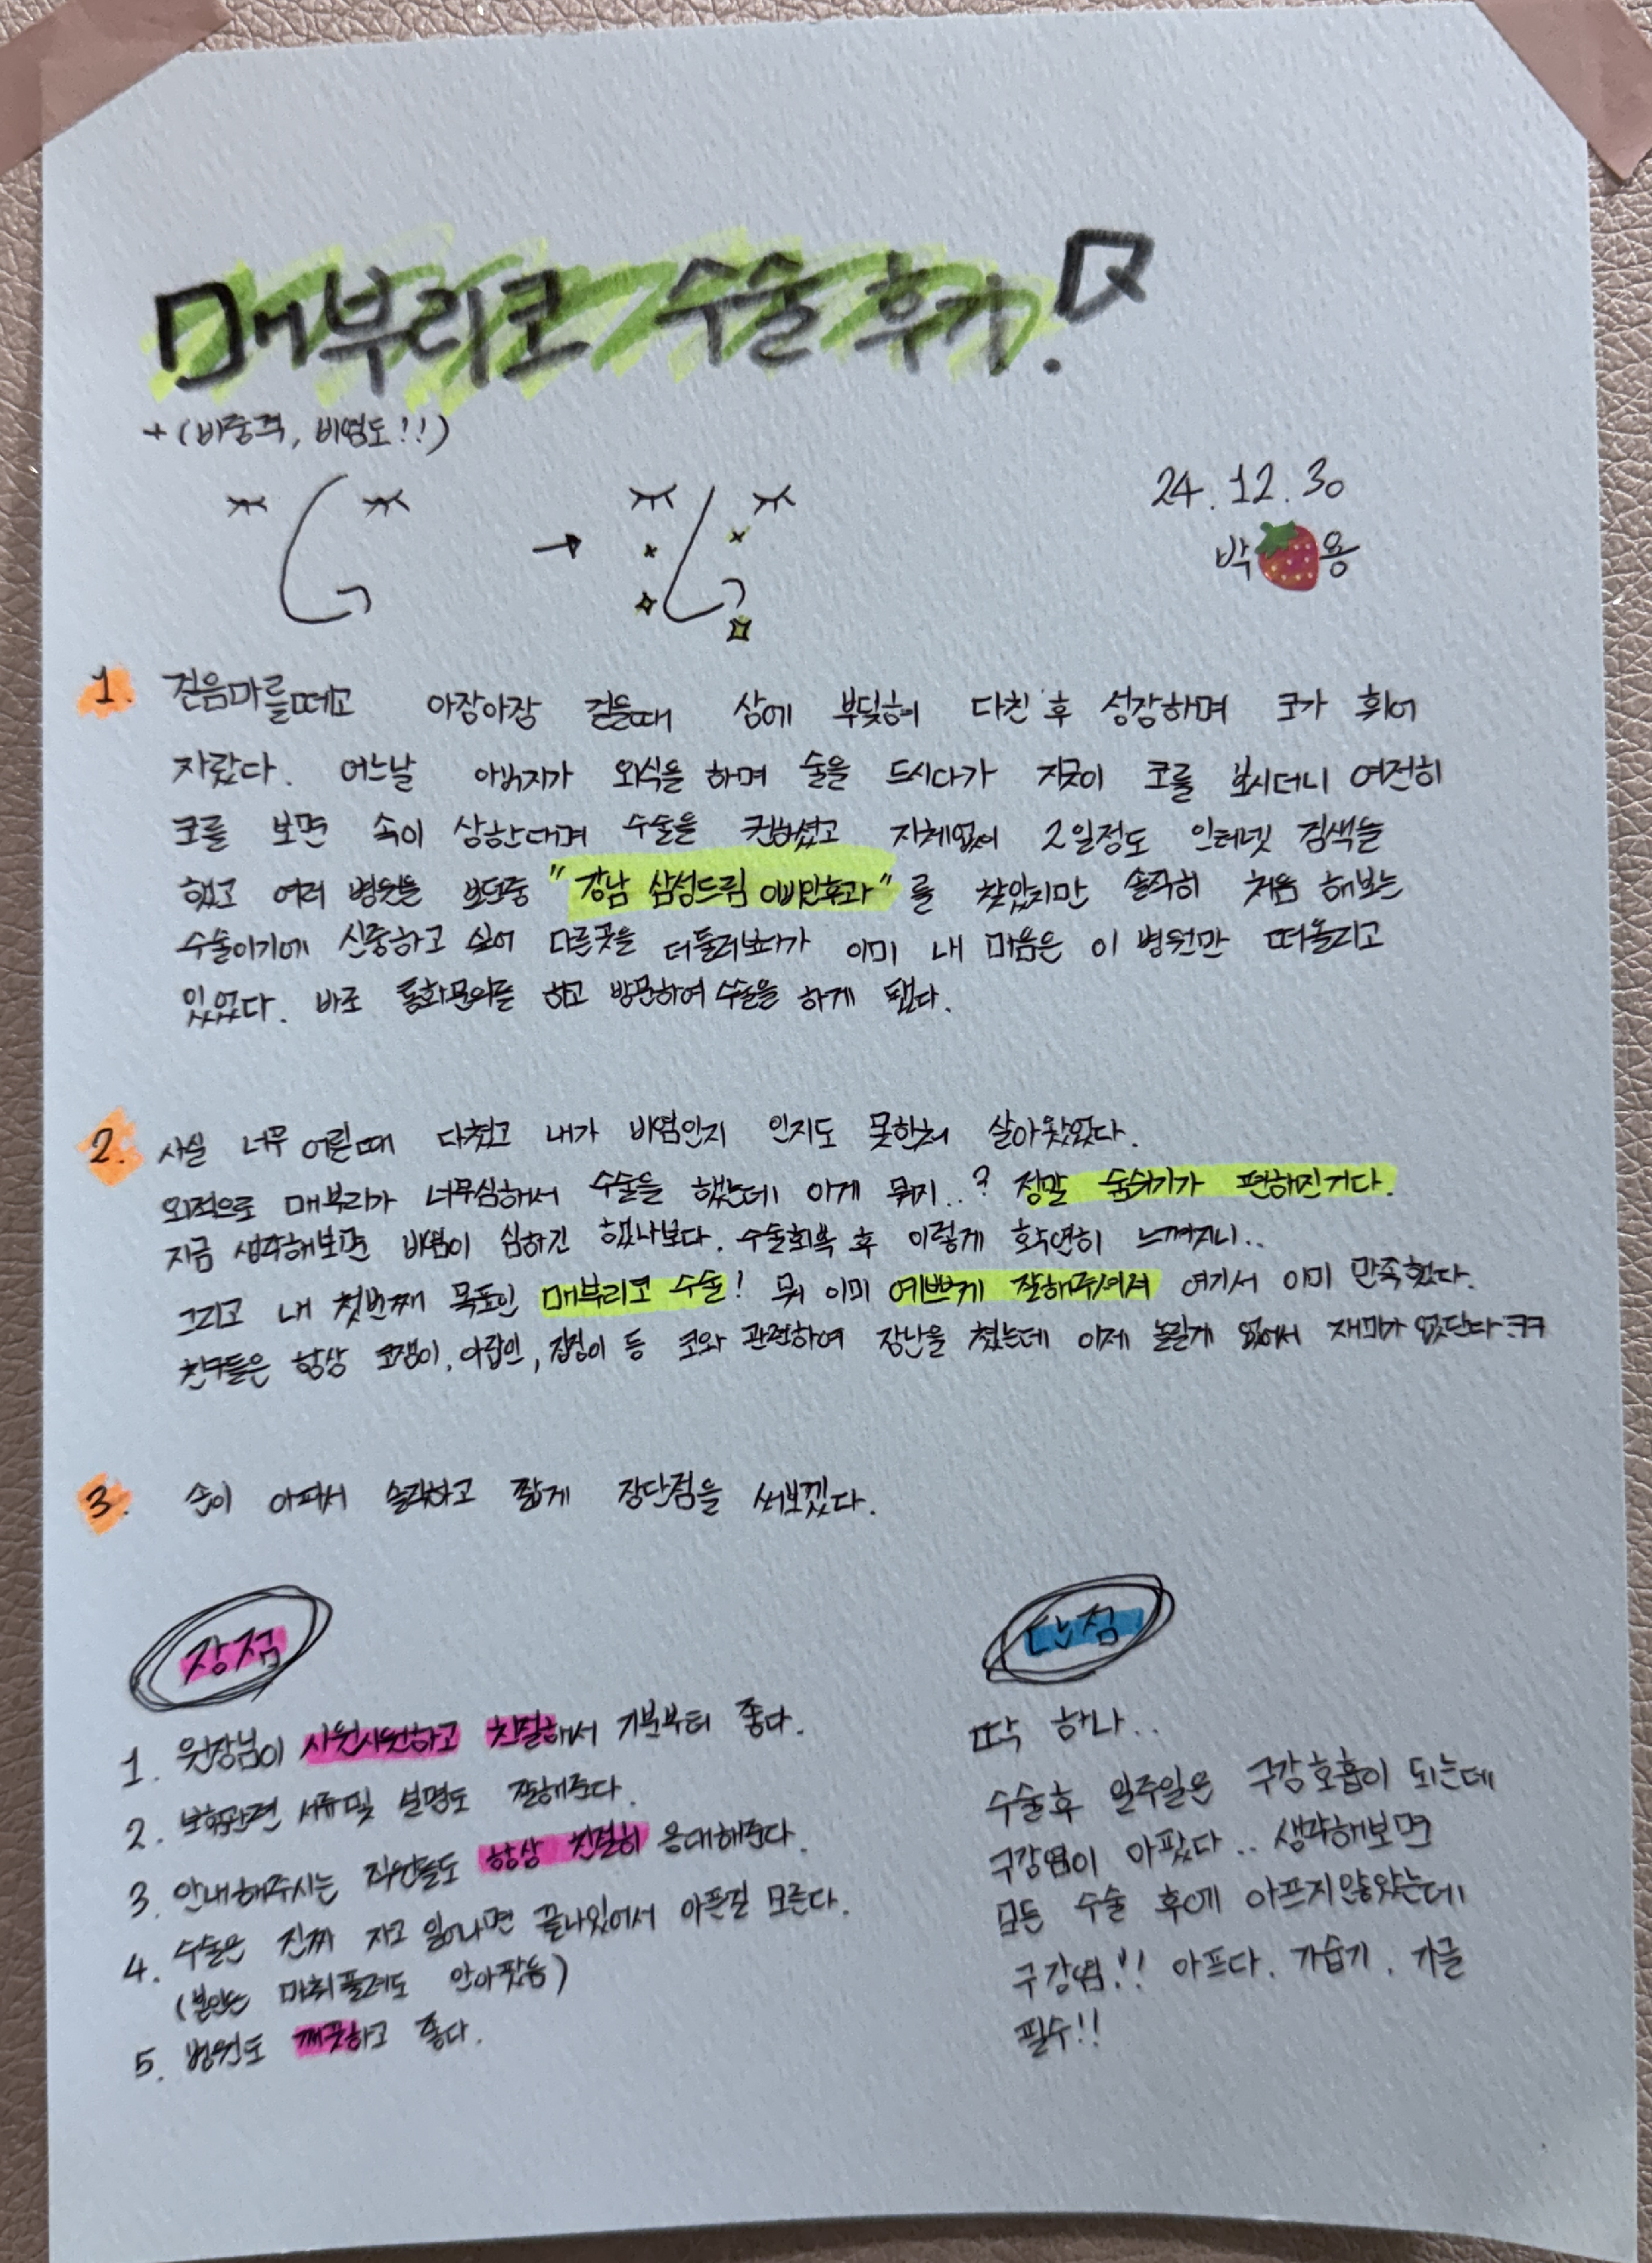 매부리코 수술 후기.
+(비중격, 비염도!!)
24.12.30
박🍓용
1. 걷음마를떼고 아장아장 걸을때 상에 부딪혀 다친 후 성장하며 코가 휘어
자랐다. 어느날 아버지가 외식을 하며 술을 드시다가 지긋이 코를 보시더니 여전히
코를 보면 속이 상한다며 수술을 권하셨고 지체없이 2일정도 인터넷 검색을
했고 여러 병원을 보던중 "강남 삼성드림 이비인후과"를 찾았지만 솔직히 처음 해보는
수술이기에 신중하고 싶어 다른곳을 더둘러보다가 이미 내 마음은 이 병원만 떠올리고
있었다. 바로 통화문의를 하고 방문하여 수술을 하게 됐다.
2. 사실 너무 어릴때 다쳤고 내가 비염인지 인지도 못한채 살아왔었다.
외적으로 매부리가 너무심해서 수술을 했는데 이게 뭐지..? 정말 숨쉬기가 편해진거다.
지금 생각해보면 비염이 심하긴 했나보다. 수술회복 후 이렇게 확연히 느껴지니..
그리고 내 첫번째 목표인 매부리코 수술! 뭐 이미 예쁘게 잘해주셔서 여기서 이미 만족했다.
친구들은 항상 코쟁이, 아랍인, 집정이 등 코와 관련하여 장난을 쳤는데 이제 놀릴게 없어서 재미가 없단다ㅋㅋ
3. 손이 아파서 솔직하고 짧게 장단점을 써보겠다.
장점
1. 원장님이 시원시원하고 친절해서 기분부터 좋다.
2. 보험관련 서류및 설명도 잘해준다.
3. 안내해주시는 직원들도 항상 친절히 응대해준다.
4. 수술은 진짜 자고 일어나면 끝나있어서 아픈걸 모른다.
(본인은 마취풀려도 안아팠음)
5. 병원도 깨끗하고 좋다.
단점
딱 하나..
수술후 일주일은 구강호흡이 되는데
구강염이 아팠다.. 생각해보면
모든 수술 후에 아프지않았는데
구강염!! 아프다. 가습기, 가글
필수!!